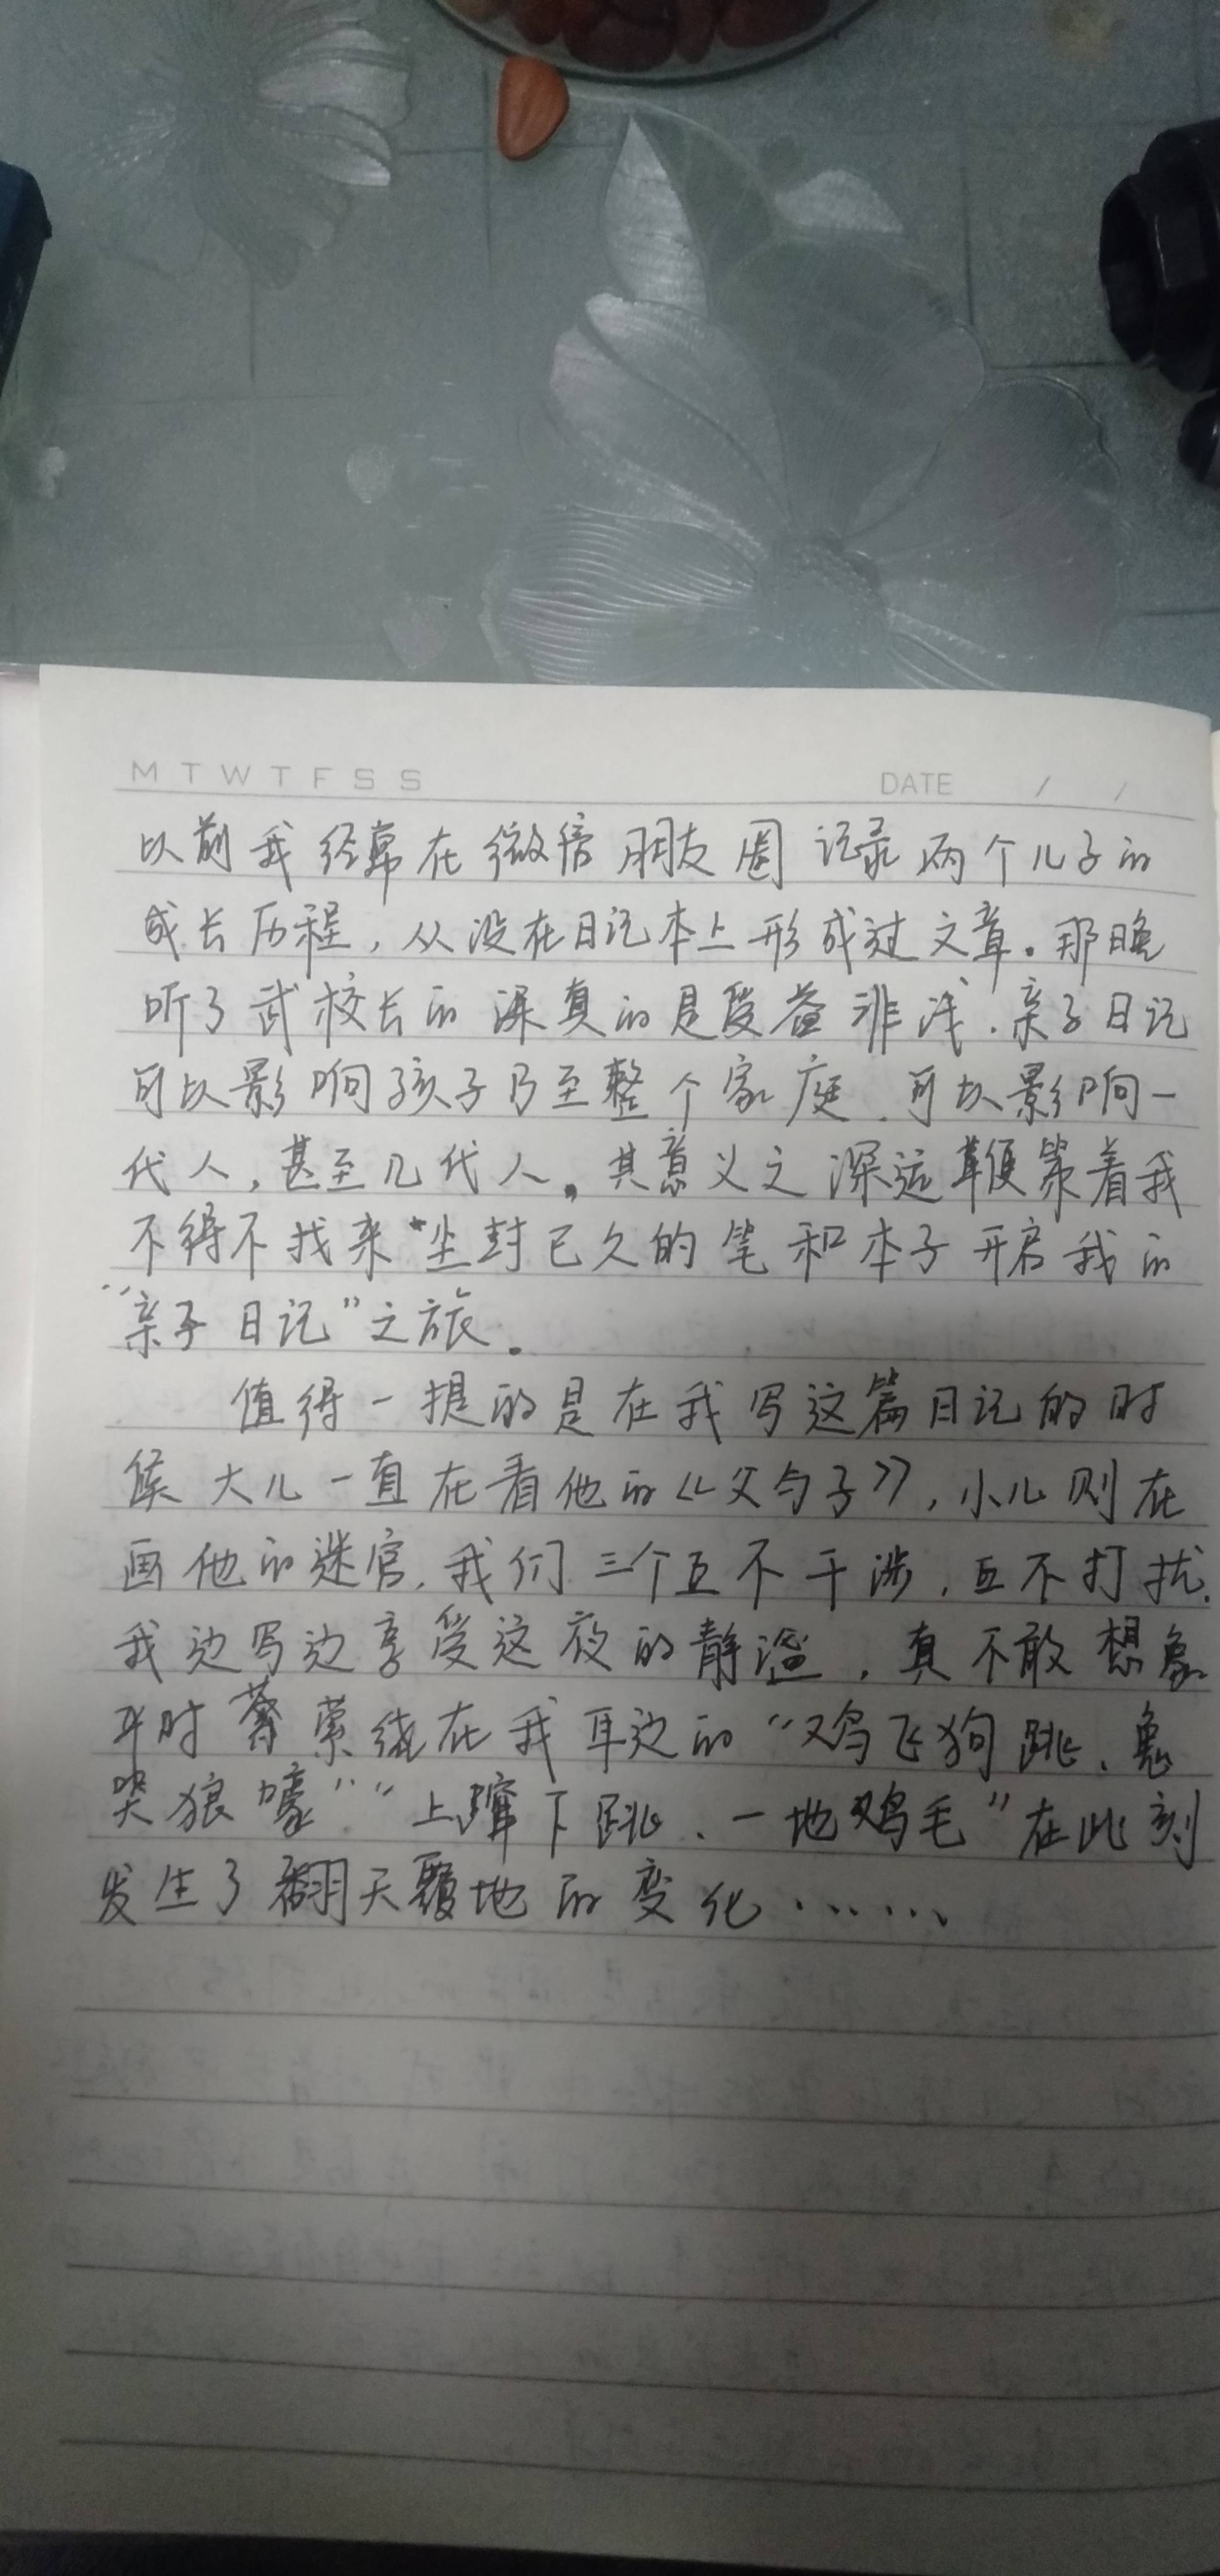 M T W T F S S DATE / /
以前我经常在微信朋友圈记录两个儿子的
成长历程,从没在日记本上形成过文章。那晚
听了武校长的课真的是受益非浅,亲子日记
可以影响孩子乃至整个家庭,可以影响一
代人,甚至几代人。其意义之深远鞭策着我
不得不找来尘封已久的笔和本子开启我的
“亲子日记”之旅。
值得一提的是在我写这篇日记的时
候大儿一直在看他的《父与子》,小儿则在
画他的迷宫,我们三个互不干涉,互不打扰.
我边写边享受这夜的静谧,真不敢想象
平时萦绕在我耳边的“鸡飞狗跳、鬼
哭狼嚎”“上蹿下跳、一地鸡毛”在此刻
发生了翻天覆地的变化......